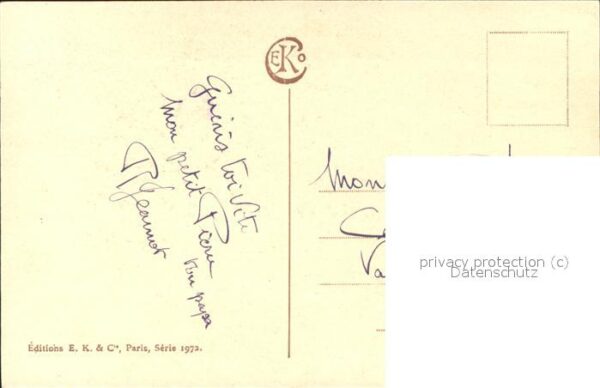 EKo
Guéris toi vite
mon petit Pierre
ton papa
P. Jeannot
Mon
Va
privacy protection (c)
Datenschutz
Éditions E. K. & Cie, Paris, Série 1972.